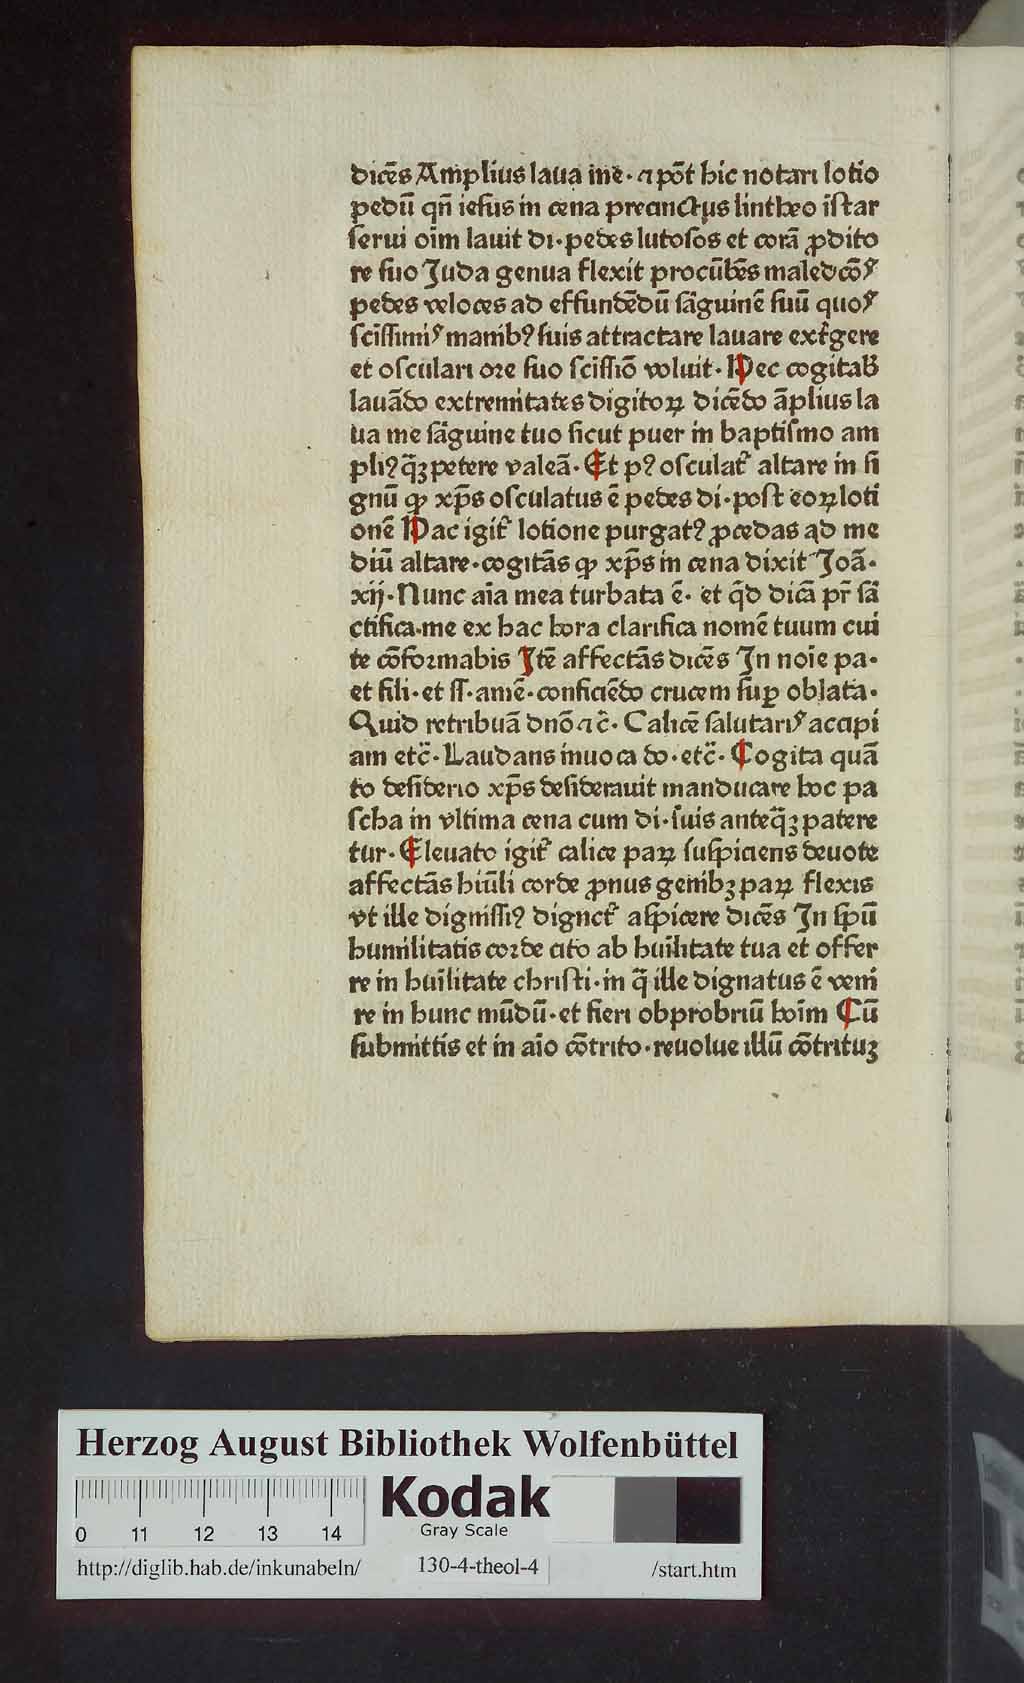 dicēs Amplius laua me· ⁊ põt hic notari lotio
pedū qñ iesus in cena precinctus lintheo istar
serui oīm lauit di· pedes lutosos et corā ꝓdito
re suo Juda genua flexit procūbēs maledcōꝝ
pedes veloces ad effundēdū sāguinē suū quoꝝ
scissimiꝰ manibꝰ suis attractare lauare ext̄gere
et osculari ore suo scissiō voluit· Hec cogitab
lauādo extremitates digitoꝝ dicēdo āplius la
ua me sāguine tuo sicut puer in baptismo am
pliꝰ q̄ꝫ petere valeā· Et pꝰ osculat᷑ altare in si
gnū ꝙ xp̄s osculatus ē pedes di· post eoꝝ loti
onē Hac igit᷑ lotione purgatꝰ ꝓcedas ad me
diū altare· cogitās ꝙ xp̄s in cena dixit Joā·
xij· Nunc aīa mea turbata ē· et q̄d dicā pr̄ sā
ctifica·me ex hac hora clarifica nomē tuum cui
te cōformabis Jtē affectās dicēs Jn noīe pa·
et fili· et ss· amē· conficiēdo crucem suꝑ oblata·
Quid retribuā dnō ⁊ c̄· Calicē salutariꝰ accipi
am etc̄· Laudans inuoca do· etc̄· Cogita quā
to desiderio xp̄s desiderauit manducare hoc pa
scha in vltima cena cum di· suis anteq̄ꝫ patere
tur· Eleuato igit᷑ calice paꝝ suspiciens deuote
affectās hiūli corde ꝓnus genibꝫ paꝝ flexis
vt ille dignissiꝰ dignet᷑ aspicere dicēs Jn spū
humilitatis corde cito ab huīlitate tua et offer
re in huīlitate christi· in q̄ ille dignatus ē veni
re in hunc mūdū· et fieri obprobriū hoīm Cū
submittis et in aīo cōtrito· reuolue illū cōtrituꝫ
Herzog August Bibliothek Wolfenbüttel
Kodak
Gray Scale
0 11 12 13 14
http://diglib.hab.de/inkunabeln/ 130-4-theol-4 /start.htm